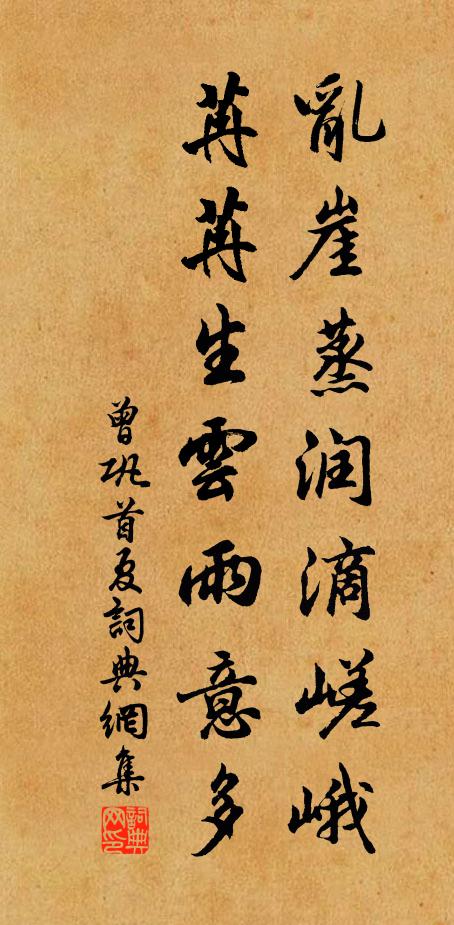 亂崖蒸润滴嵯峨
苒苒生雲雨意多
曾巩首夏詞典網集
詞典网印